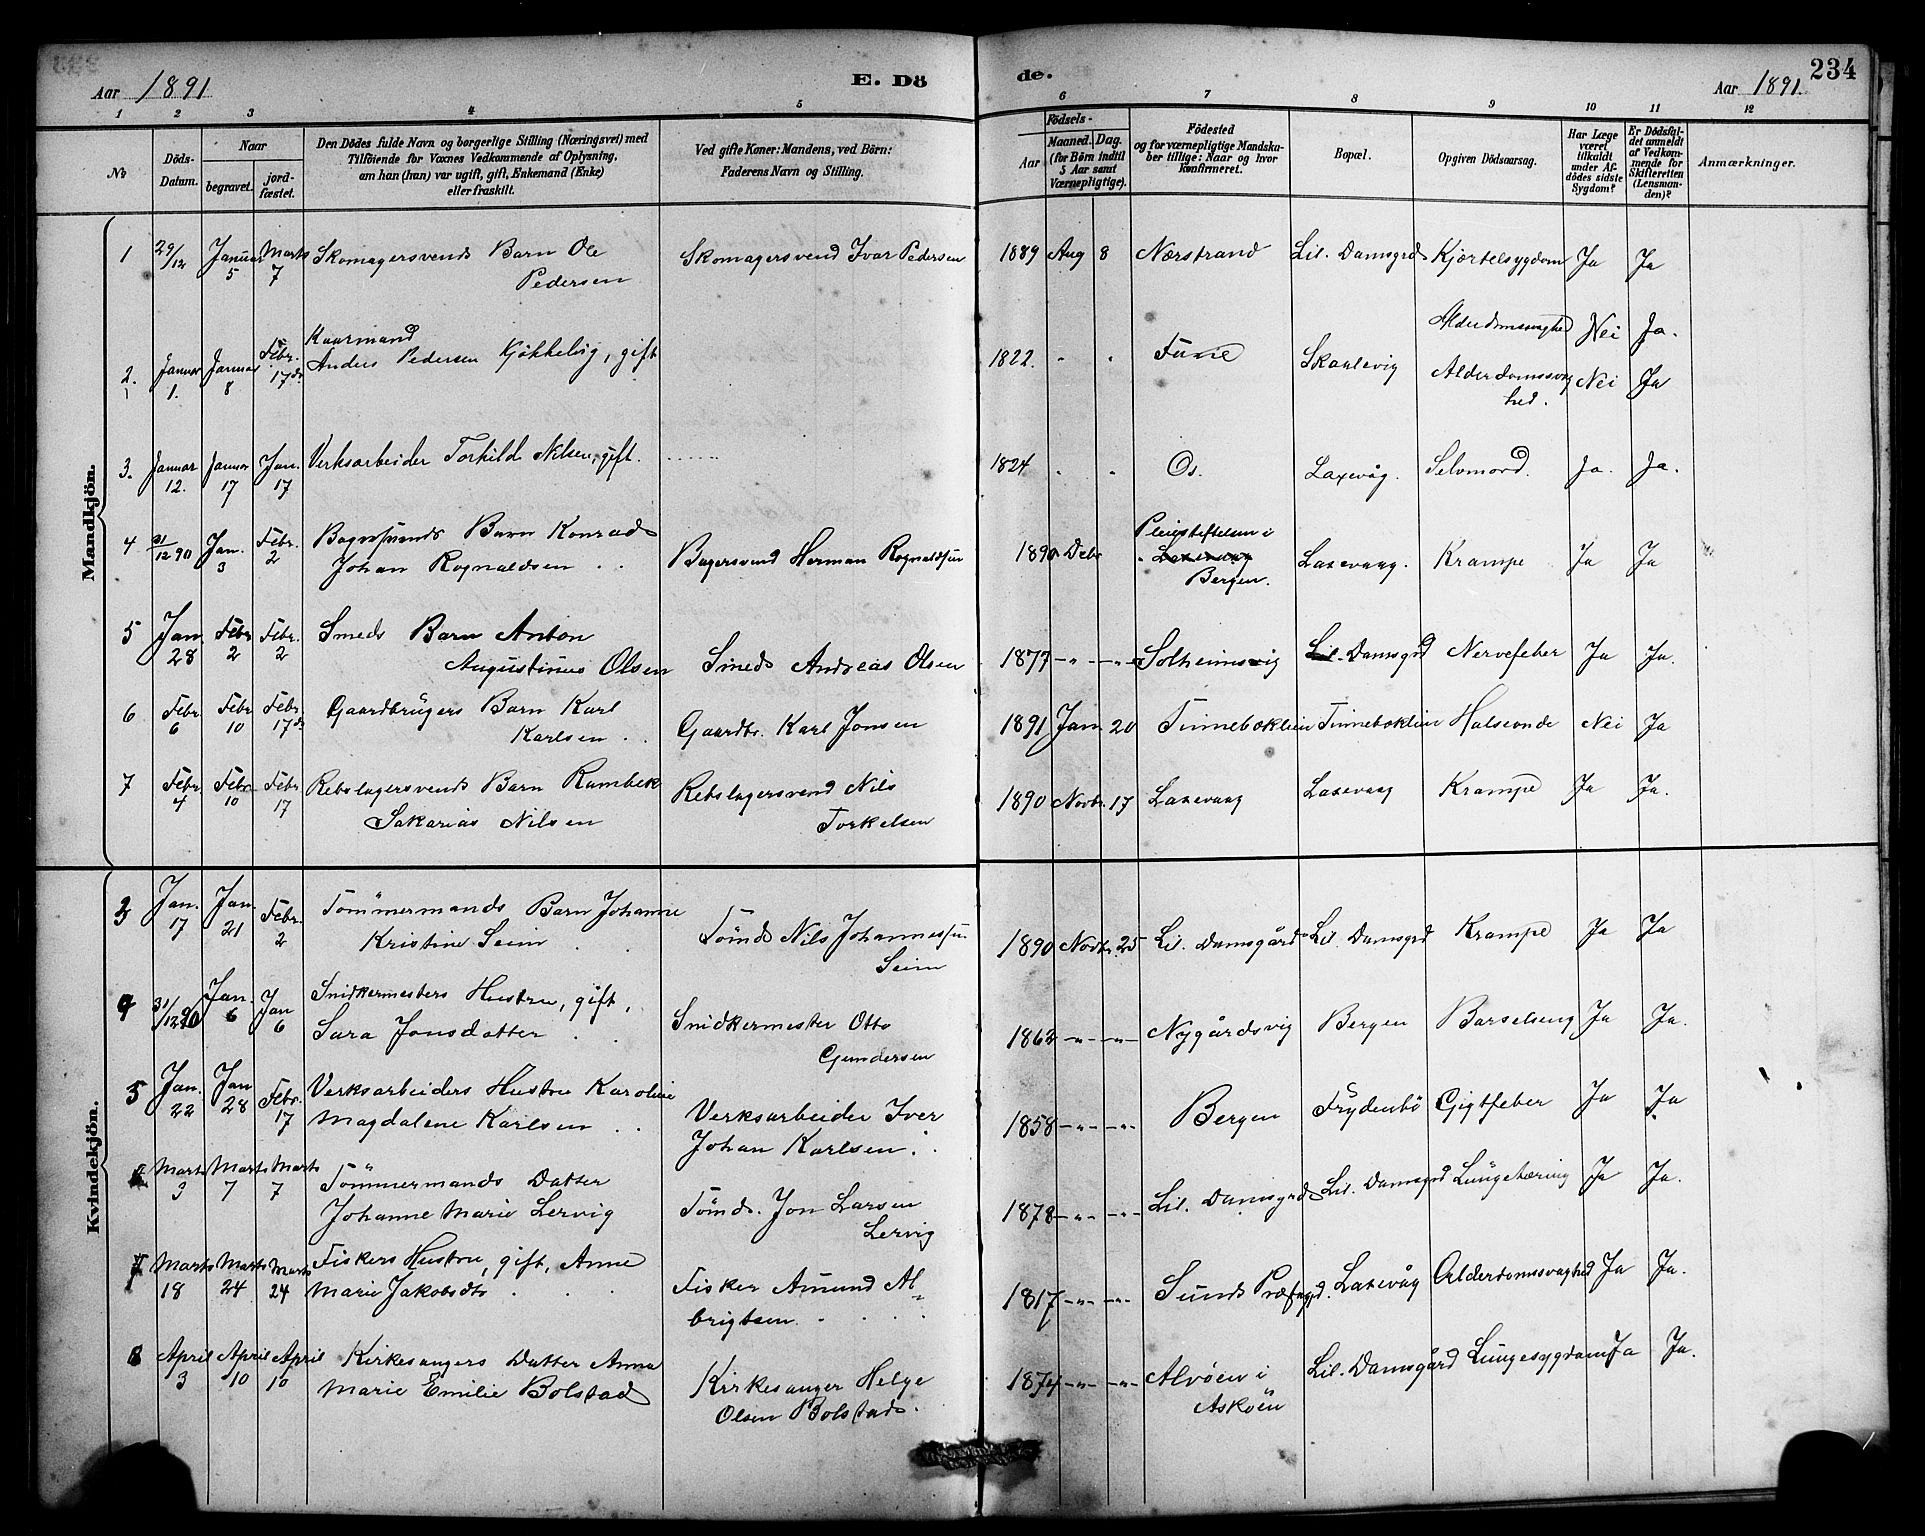 234
Aar 1891
E. Dö
de.
Aar 1891.
1 2 3 4 5 6 7 8 9 10 11 12
No
Döds-
Datum.
Naar
begravet.
jord-
fæstet.
Den Dödes fulde Navn og borgerlige Stilling (Næringsvei) med
Tilföiende for Voxnes Vedkommende af Oplysning,
om han (hun) var ugift, gift, Enkemand (Enke)
eller fraskilt.
Ved gifte Koner: Mandens, ved Börn:
Faderens Navn og Stilling.
Födsels-
Aar
Maaned.
Dag.
(for Börn indtil
5 Aar samt
Værnepligtige).
Födested
og for værnepligtige Mandska-
ber tillige: Naar og hvor
konfirmeret.
Bopæl.
Opgiven Dödsaarsag.
Har Læge
været
tilkaldt
under Af-
dödes sidste
Sygdom?
Er Dödsfal-
det anmeldt
af Vedkom-
mende for
Skifteretten
(Lensman-
den)?
Anmærkninger.
Mandkjön.
1 29/12 Januar 5 Marts 7 Skomagersvends Barn Ole
Pedersen
Skomagersvend Ivar Pedersen 1889 Aug 8 Nærstrand Lil. Damsgrd Kjertelsygdom Ja Ja
2. Januar 1. Januar 8 Febr. 17de Kaarmand
Anders Pedersen Kjökkelvig, gift
1822. " " Fane Skaalevig Alderdomssvaghed Nei Ja.
Alderdomssvag
hed. Nei Ja
3. Januar 12. Januar 17 Jan. 17 Verksarbeider Torkild Nilsen, gift. 1824 " " Os. Laxevåg. Selvmord. Ja. Ja.
4 31/12 90 Jan. 3 Febr. 2 Bagersvends Barn Konrad
Johan Rognaldsen . .
Bagersvend Herman Rognaldsen 1890 Debr Pleiestiftelsen i
Laxevaag
Bergen.
Laxevaag. Krampe Ja Ja
5 Jan. 28 Febr 2 Febr. 2 Smeds Barn Anton
Augustinus Olsen
Smed Andreas Olsen 1877 -"- -"- Solheimsvig Lil. Damsgrd Nervefeber Ja Ja.
6 Febr 6 Febr 10 Febr. 17de Gaardbrügers Barn Karl
Karlsen . .
Gaardbr. Karl Jonsen 1891 Jan. 20 Tinnebækleien Tinnebækleien Halsonde Nei Ja
7 Febr. 4 Febr. 10 Febr. 17 Rebslagersvends Barn Rambek
Sakarias Nilsen
Rebslagersvend Nils
Torkelsen
1890 Novbr. 17 Laxevaag Laxevaag Krampe Ja Ja.
Kvindekjön.
3 Jan. 17 Jan. 21 Febr. 2 Tömmermands Barn Johanne
Kristine Seim . .
Tömd Nils Johannessen
Seim
1890 Novbr. 25 Lil. Damsgård Lil. Damsgrd Krampe Ja Ja
4 31/12 90 Jan. 6 Jan 6 Snidkermesters Hustru, gift,
Sara Jonsdatter . .
Snidkermester Otto
Gundersen
1862 -"- -"- Nygårdsvig Bergen Barselseng Ja Ja.
5 Jan. 22 Jan 28 Febr. 17 Verksarbeiders Hustru Karoline
Magdalene Karlsen . .
Verksarbeider Iver
Johan Karlsen . .
1858 -"- -"- Bergen Frydenbö Gigtfeber Ja Ja.
6 Marts 3 Marts 7 Marts 7 Tömmermands Datter
Johanne Marie Lervig
Tömd. Jon Larsen
Lervig
1878 -"- -"- Lil. Damsgrd Lil. Damsgrd Lungetæring Ja Ja.
7 Marts 18 Marts 24 Marts 24 Fiskers Hustru, gift, Anne
Marie Jakobsdtr . . .
Fisker Amund Al-
brigtsen. . . .
1817 -"- -"- Sunds Præstegjd. Laxevåg Alderdomssvaghed Ja Ja.
8 April 3 April 10 April 10 Kirkesangers Datter Anna
Marie Emilie Bolstad
Kirkesanger Helge
Olsen Bolstad.
1874 -"- -"- Alvöen i
Asköen
Lil. Damsgård Lungesygdom Ja Ja.